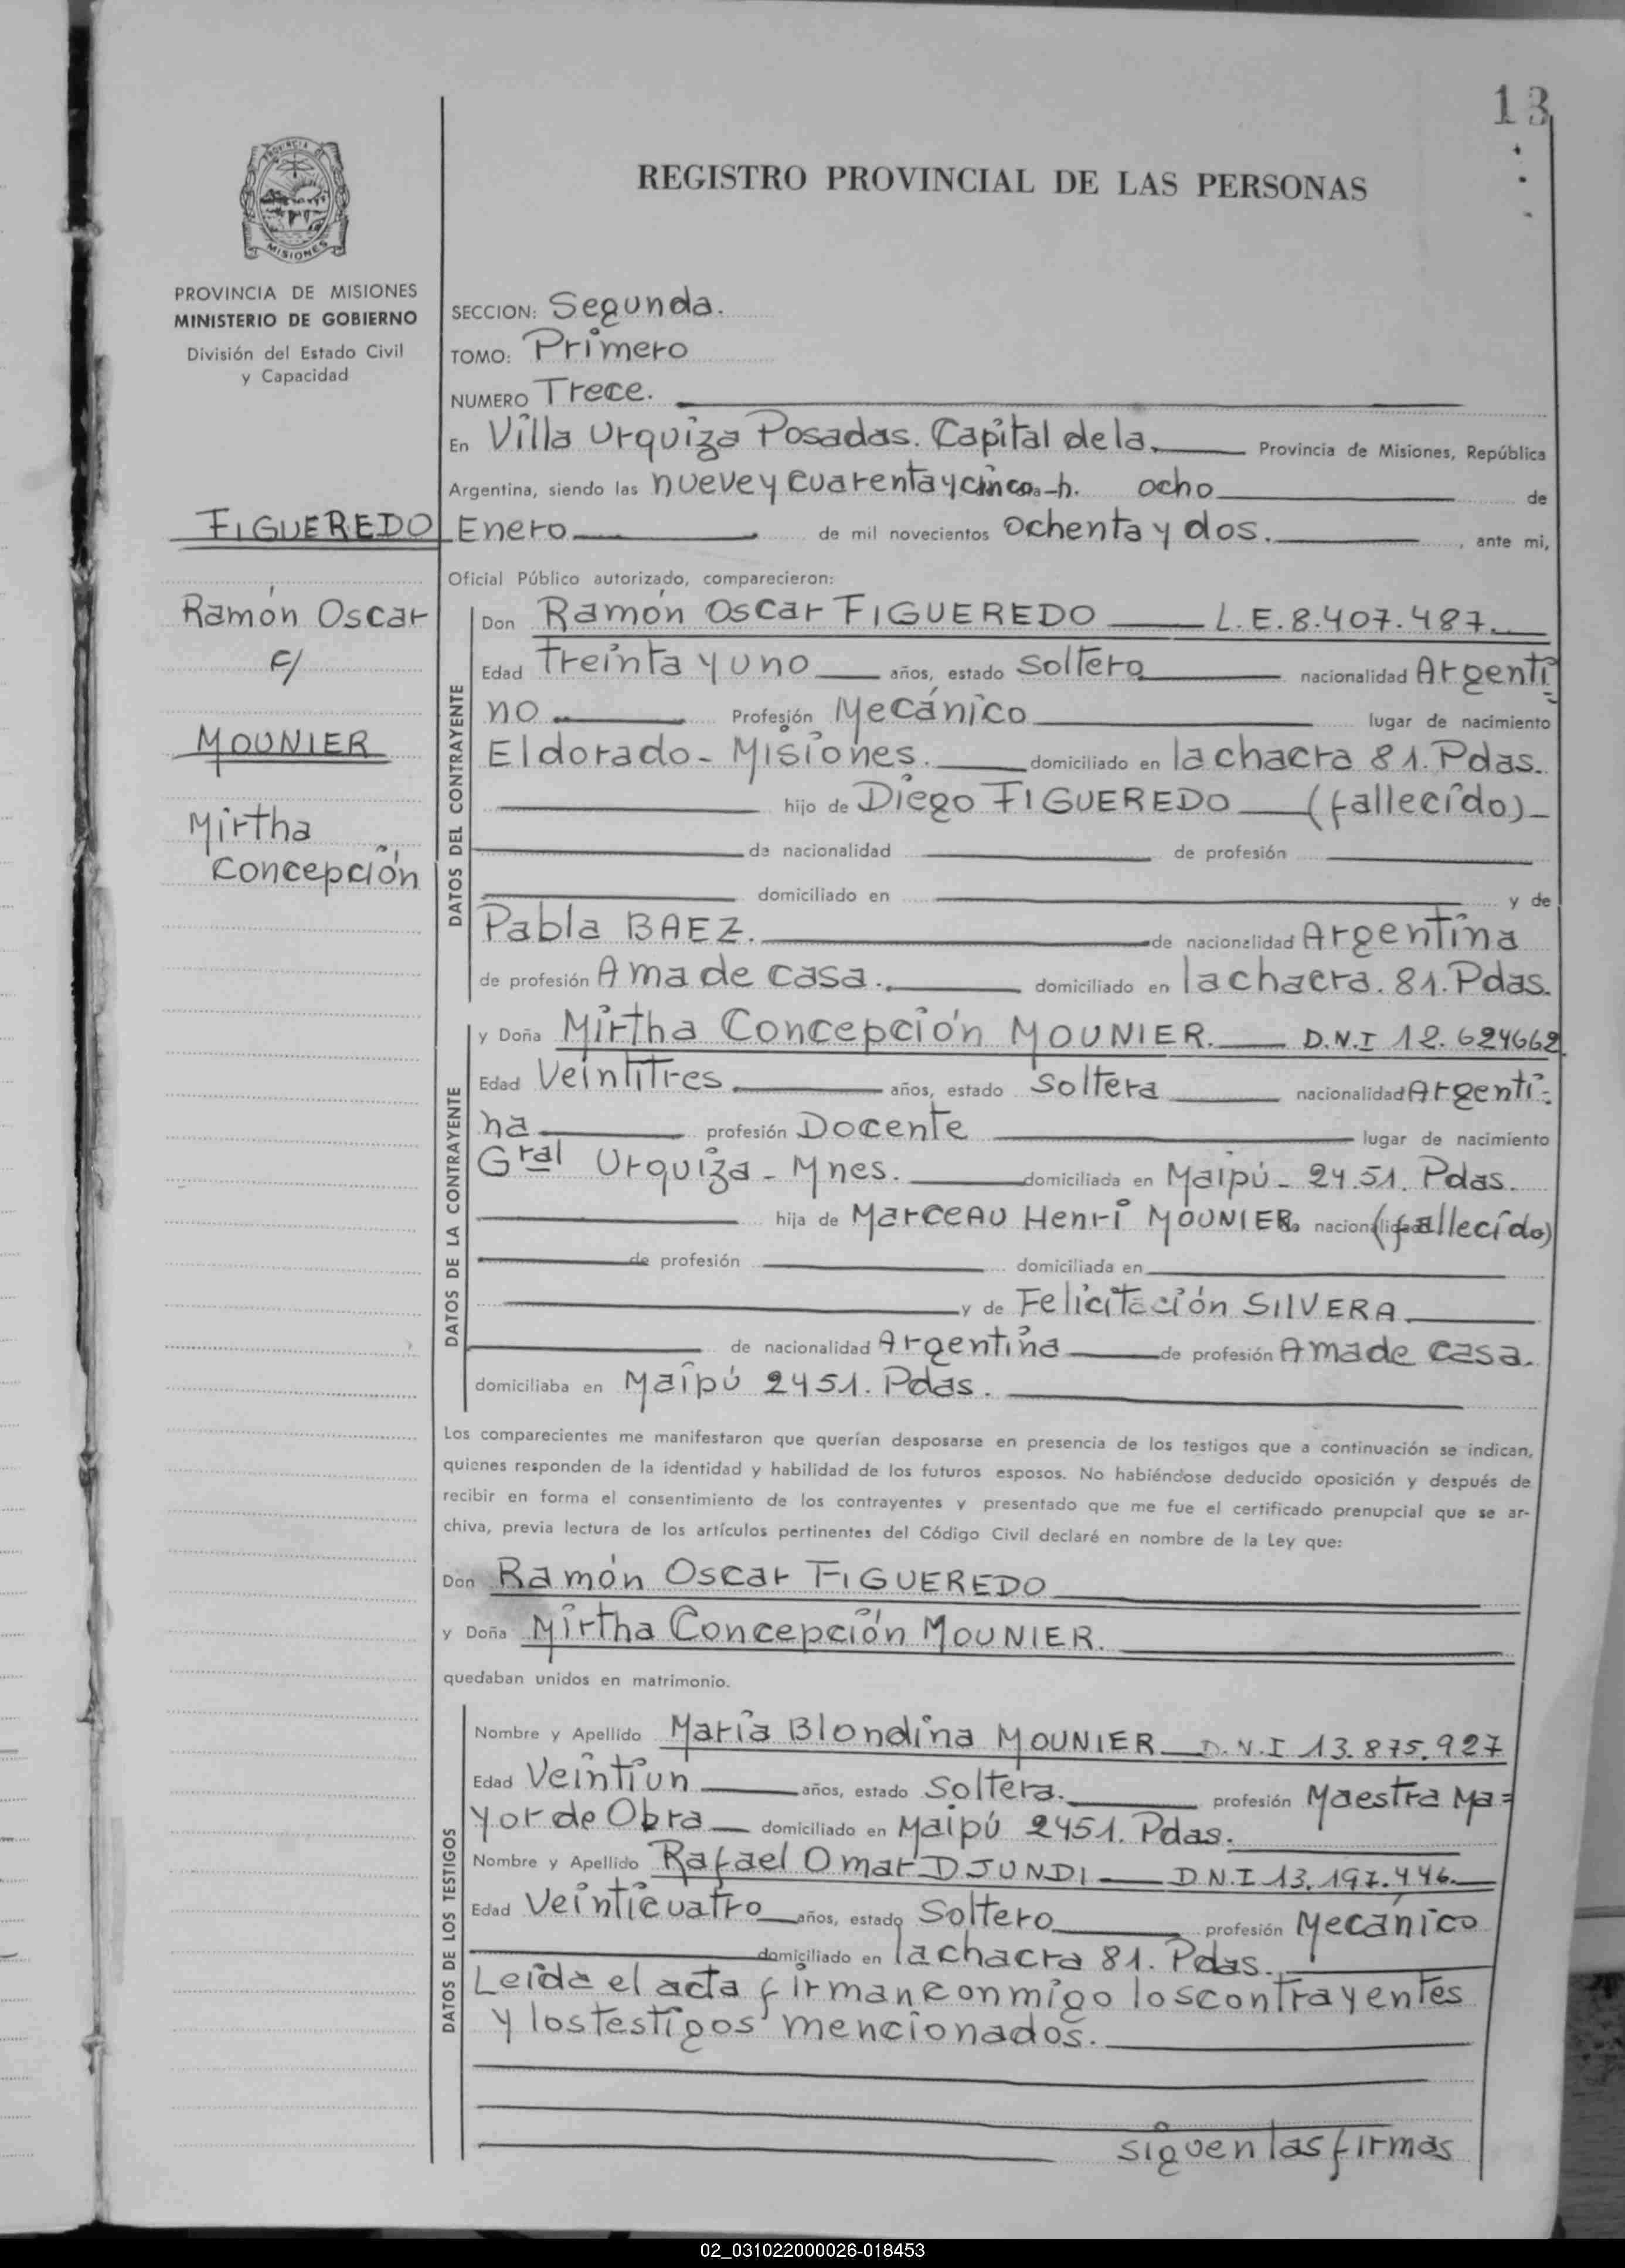 13
REGISTRO PROVINCIAL DE LAS PERSONAS
PROVINCIA DE
MISIONES
PROVINCIA DE MISIONES
MINISTERIO DE GOBIERNO
División del Estado Civil
y Capacidad
SECCION: Segunda.
TOMO: Primero
NUMERO Trece.
En Villa Urquiza Posadas. Capital de la Provincia de Misiones, República
Argentina, siendo las nueve y cuarenta y cinco h. ocho de
Enero de mil novecientos ochenta y dos. , ante mi,
FIGUEREDO
Ramón Oscar
c/
MOUNIER
Mirtha
Concepción
Oficial Público autorizado, comparecieron:
DATOS DEL CONTRAYENTE
Don Ramón Oscar FIGUEREDO L.E. 8.407.487.
Edad Treinta y uno años, estado Soltero nacionalidad Argenti=
no Profesión Mecánico lugar de nacimiento
Eldorado - Misiones. domiciliado en la chacra 81. Pdas.
hijo de Diego FIGUEREDO (fallecido)
de nacionalidad de profesión
domiciliado en y de
Pabla BAEZ. de nacionalidad Argentina
de profesión Ama de casa. domiciliado en la chacra. 81. Pdas.
DATOS DE LA CONTRAYENTE
y Doña Mirtha Concepción MOUNIER. D.N.I 12.624662
Edad Veintitres años, estado Soltera nacionalidad Argenti=
na profesión Docente lugar de nacimiento
Gral Urquiza - Mnes. domiciliada en Maipú - 24.51. Pdas.
hija de Marceau Henri MOUNIER. nacionalidad (fallecido)
de profesión domiciliada en
y de Felicitación SILVERA.
de nacionalidad Argentina de profesión Ama de casa.
domiciliaba en Maipú 2451. Pdas.
Los comparecientes me manifestaron que querían desposarse en presencia de los testigos que a continuación se indican,
quienes responden de la identidad y habilidad de los futuros esposos. No habiéndose deducido oposición y después de
recibir en forma el consentimiento de los contrayentes y presentado que me fue el certificado prenupcial que se ar-
chiva, previa lectura de los artículos pertinentes del Código Civil declaré en nombre de la Ley que:
Don Ramón Oscar FIGUEREDO
y Doña Mirtha Concepción MOUNIER.
quedaban unidos en matrimonio.
DATOS DE LOS TESTIGOS
Nombre y Apellido María Blondina MOUNIER D.N.I 13.875.927
Edad Veintiun años, estado Soltera. profesión Maestra Ma=
yor de Obra domiciliado en Maipú 2451. Pdas.
Nombre y Apellido Rafael Omar DJUNDI D.N.I 13.197.446.
Edad Veinticuatro años, estado Soltero profesión Mecánico
domiciliado en la chacra 81. Pdas.
Leída el acta firman conmigo los contrayentes
y los testigos mencionados.
siguen las firmas
02_031022000026-018453